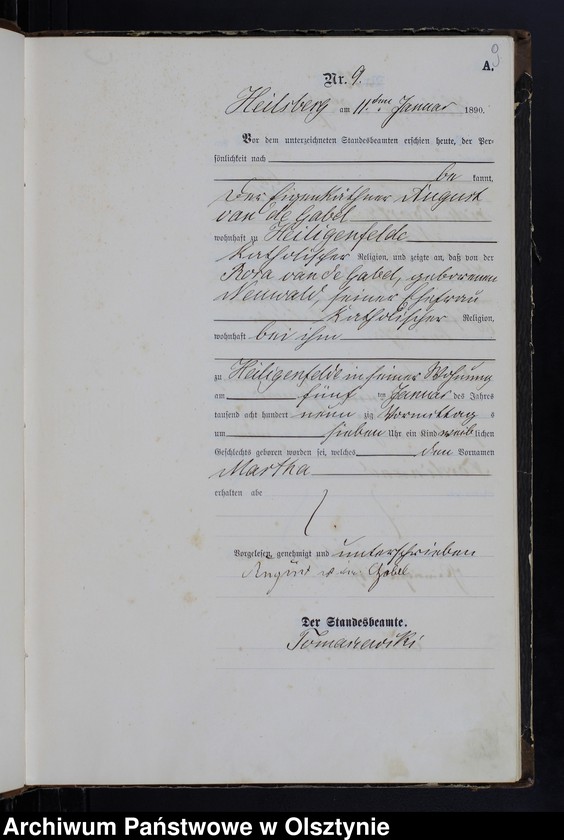 9
A.
Nr. 9.
Heilsberg am 11ten Januar 1890.
Vor dem unterzeichneten Standesbeamten erschien heute, der Per-
sönlichkeit nach
be kannt,
der Eigenkäthner August
van de Gabel
wohnhaft zu Heiligenfelde
katholischer Religion, und zeigte an, daß von der
Rosa van de Gabel, geborenen
Neuwald, seiner Ehefrau
katholischer Religion,
wohnhaft bei ihm
zu Heiligenfelde in seiner Wohnung
am fünf ten Januar des Jahres
tausend acht hundert neun zig Vormittag s
um sieben Uhr ein Kind weib lichen
Geschlechts geboren worden sei, welches den Vornamen
Martha
erhalten habe
Vorgelesen, genehmigt und unterschrieben
August van de Gabel
Der Standesbeamte.
Tomaszewski
Archiwum Państwowe w Olsztynie